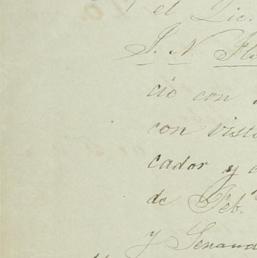 el Lic.
J. N. Flo
cio con
con vista
cador y
de Feb.
y Genaro